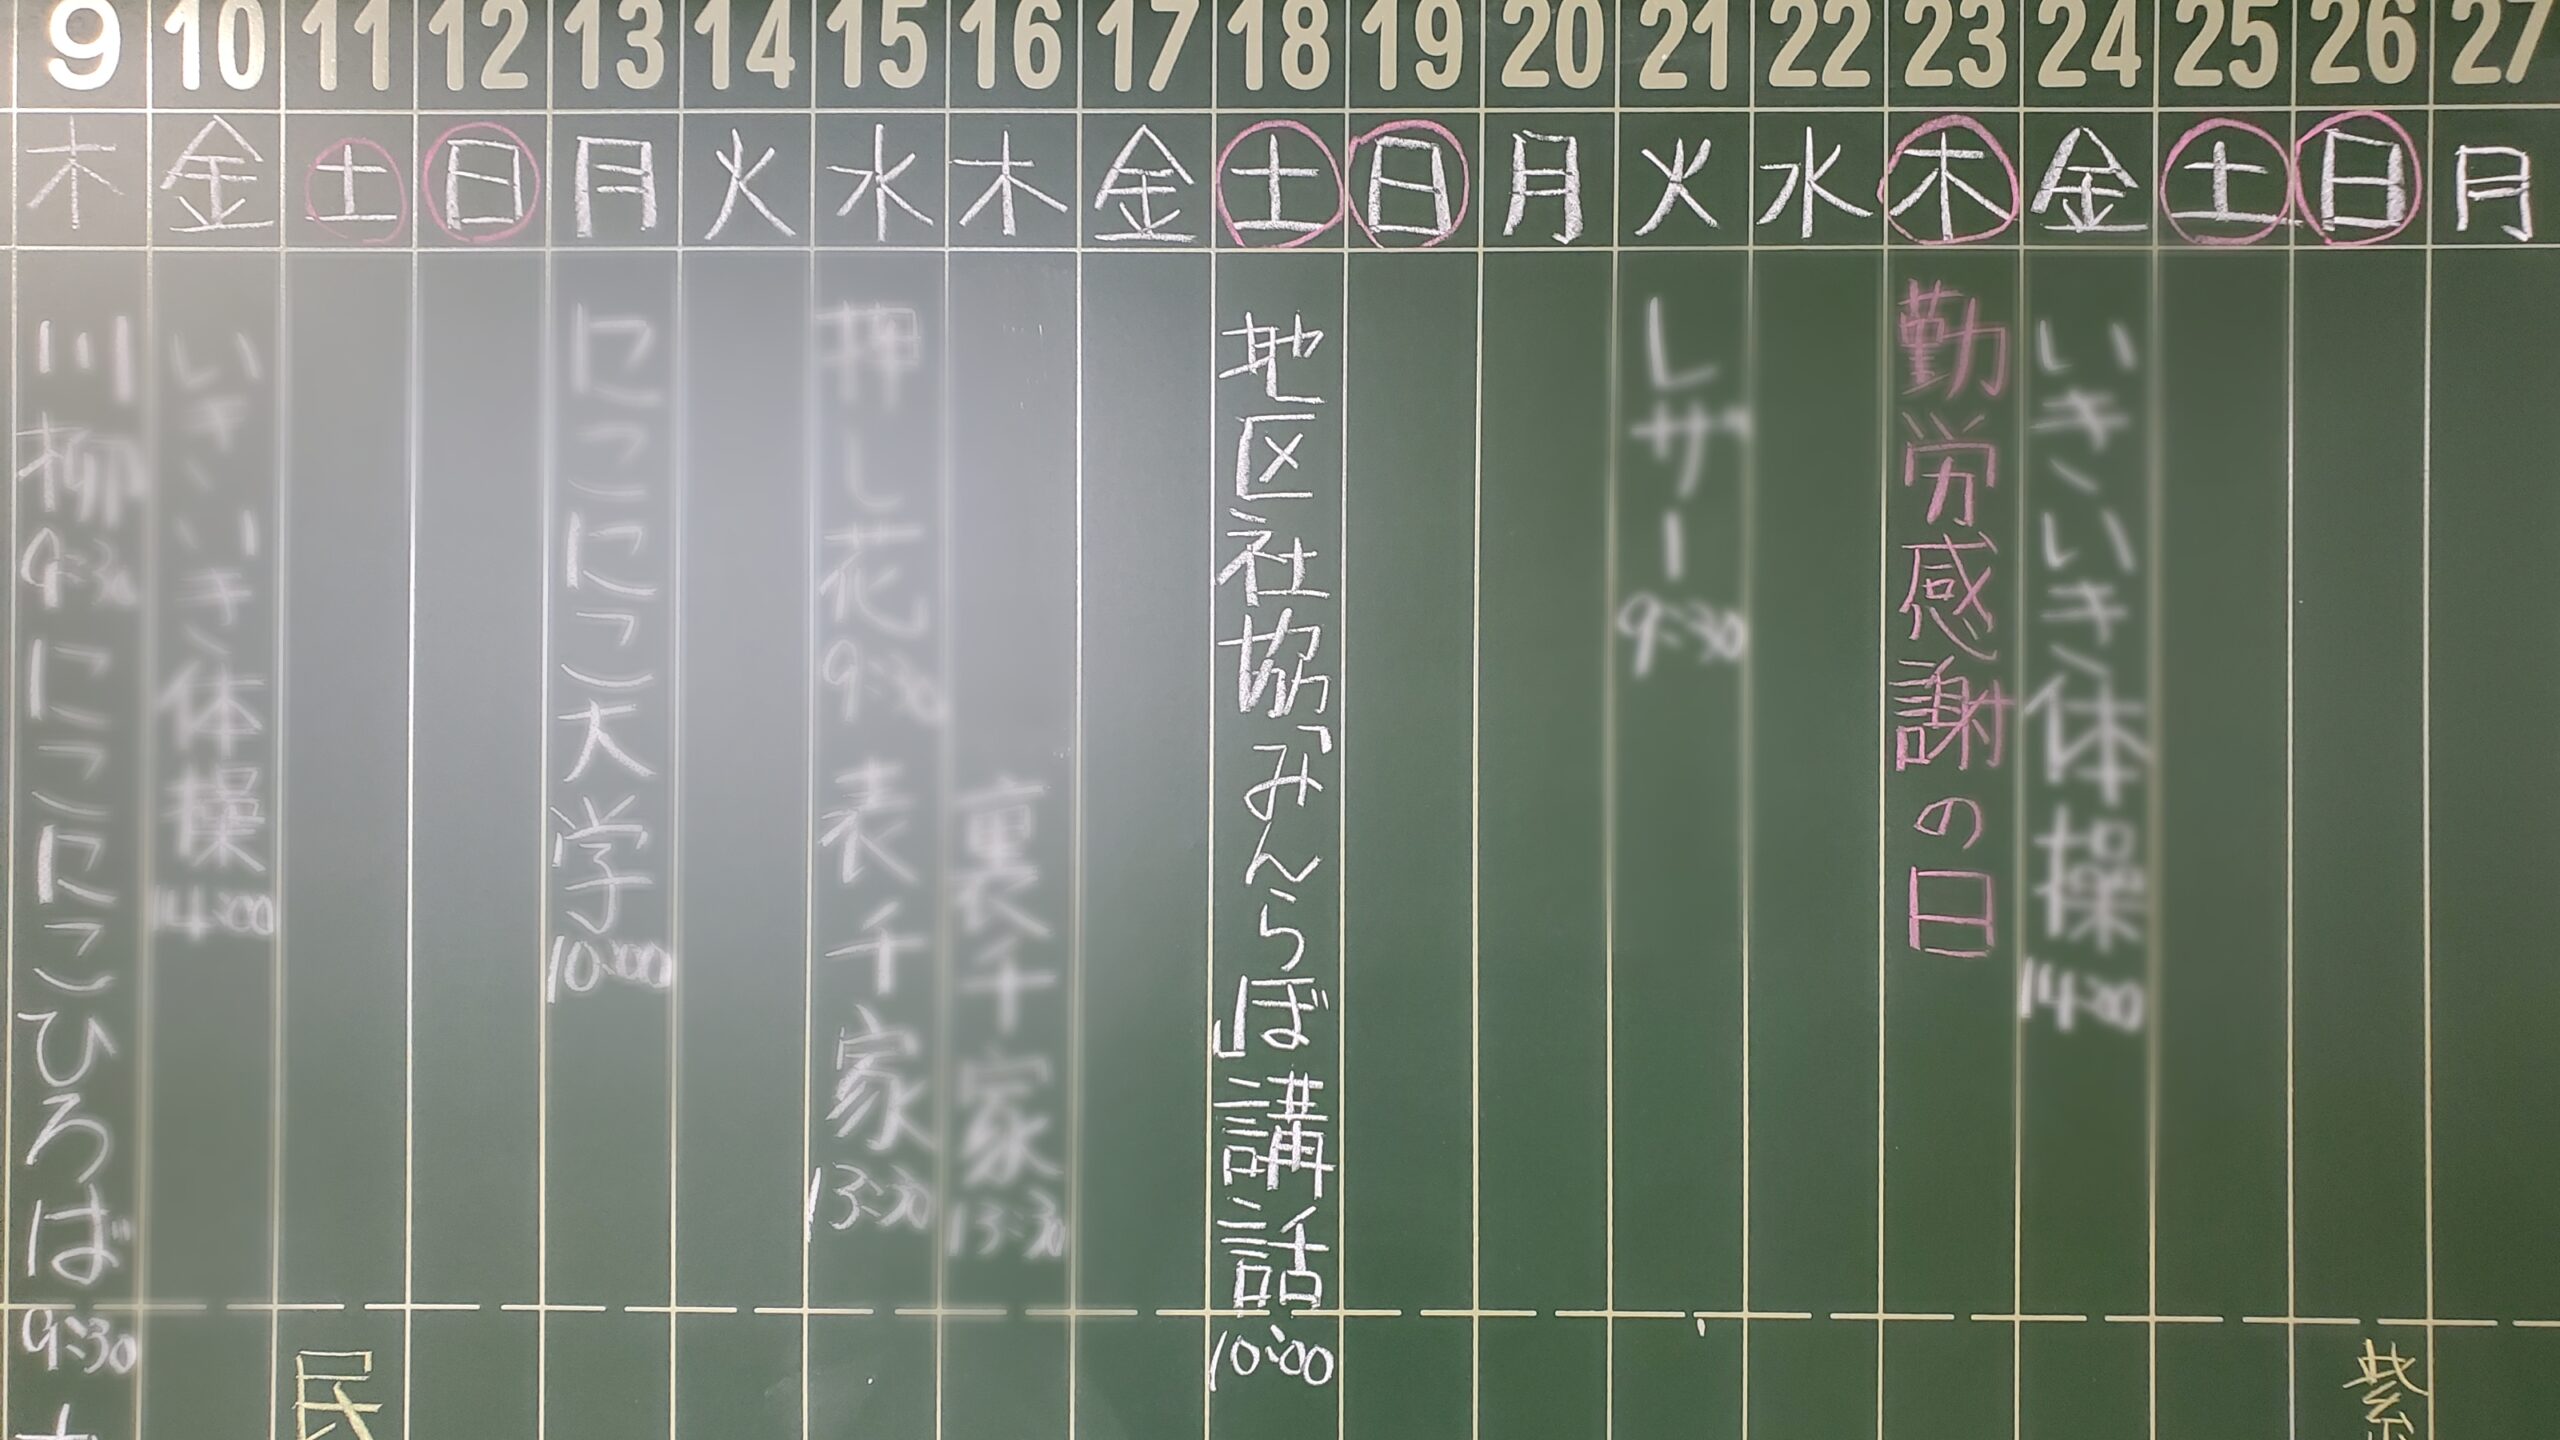 9 10 11 12 13 14 15 16 17 18 19 20 21 22 23 24 25 26 27
木 金 土 日 月 火 水 木 金 土 日 月 火 水 木 金 土 日 月
川柳 9:30 にこにこひろば 9:30
いきいき体操 14:00
民
にこにこ大学 10:00
押し花 9:30 表千家 13:30
裏千家 13:30
地区社協「みんらぼ」講話 10:00
レザー 9:30
勤労感謝の日
いきいき体操 14:00